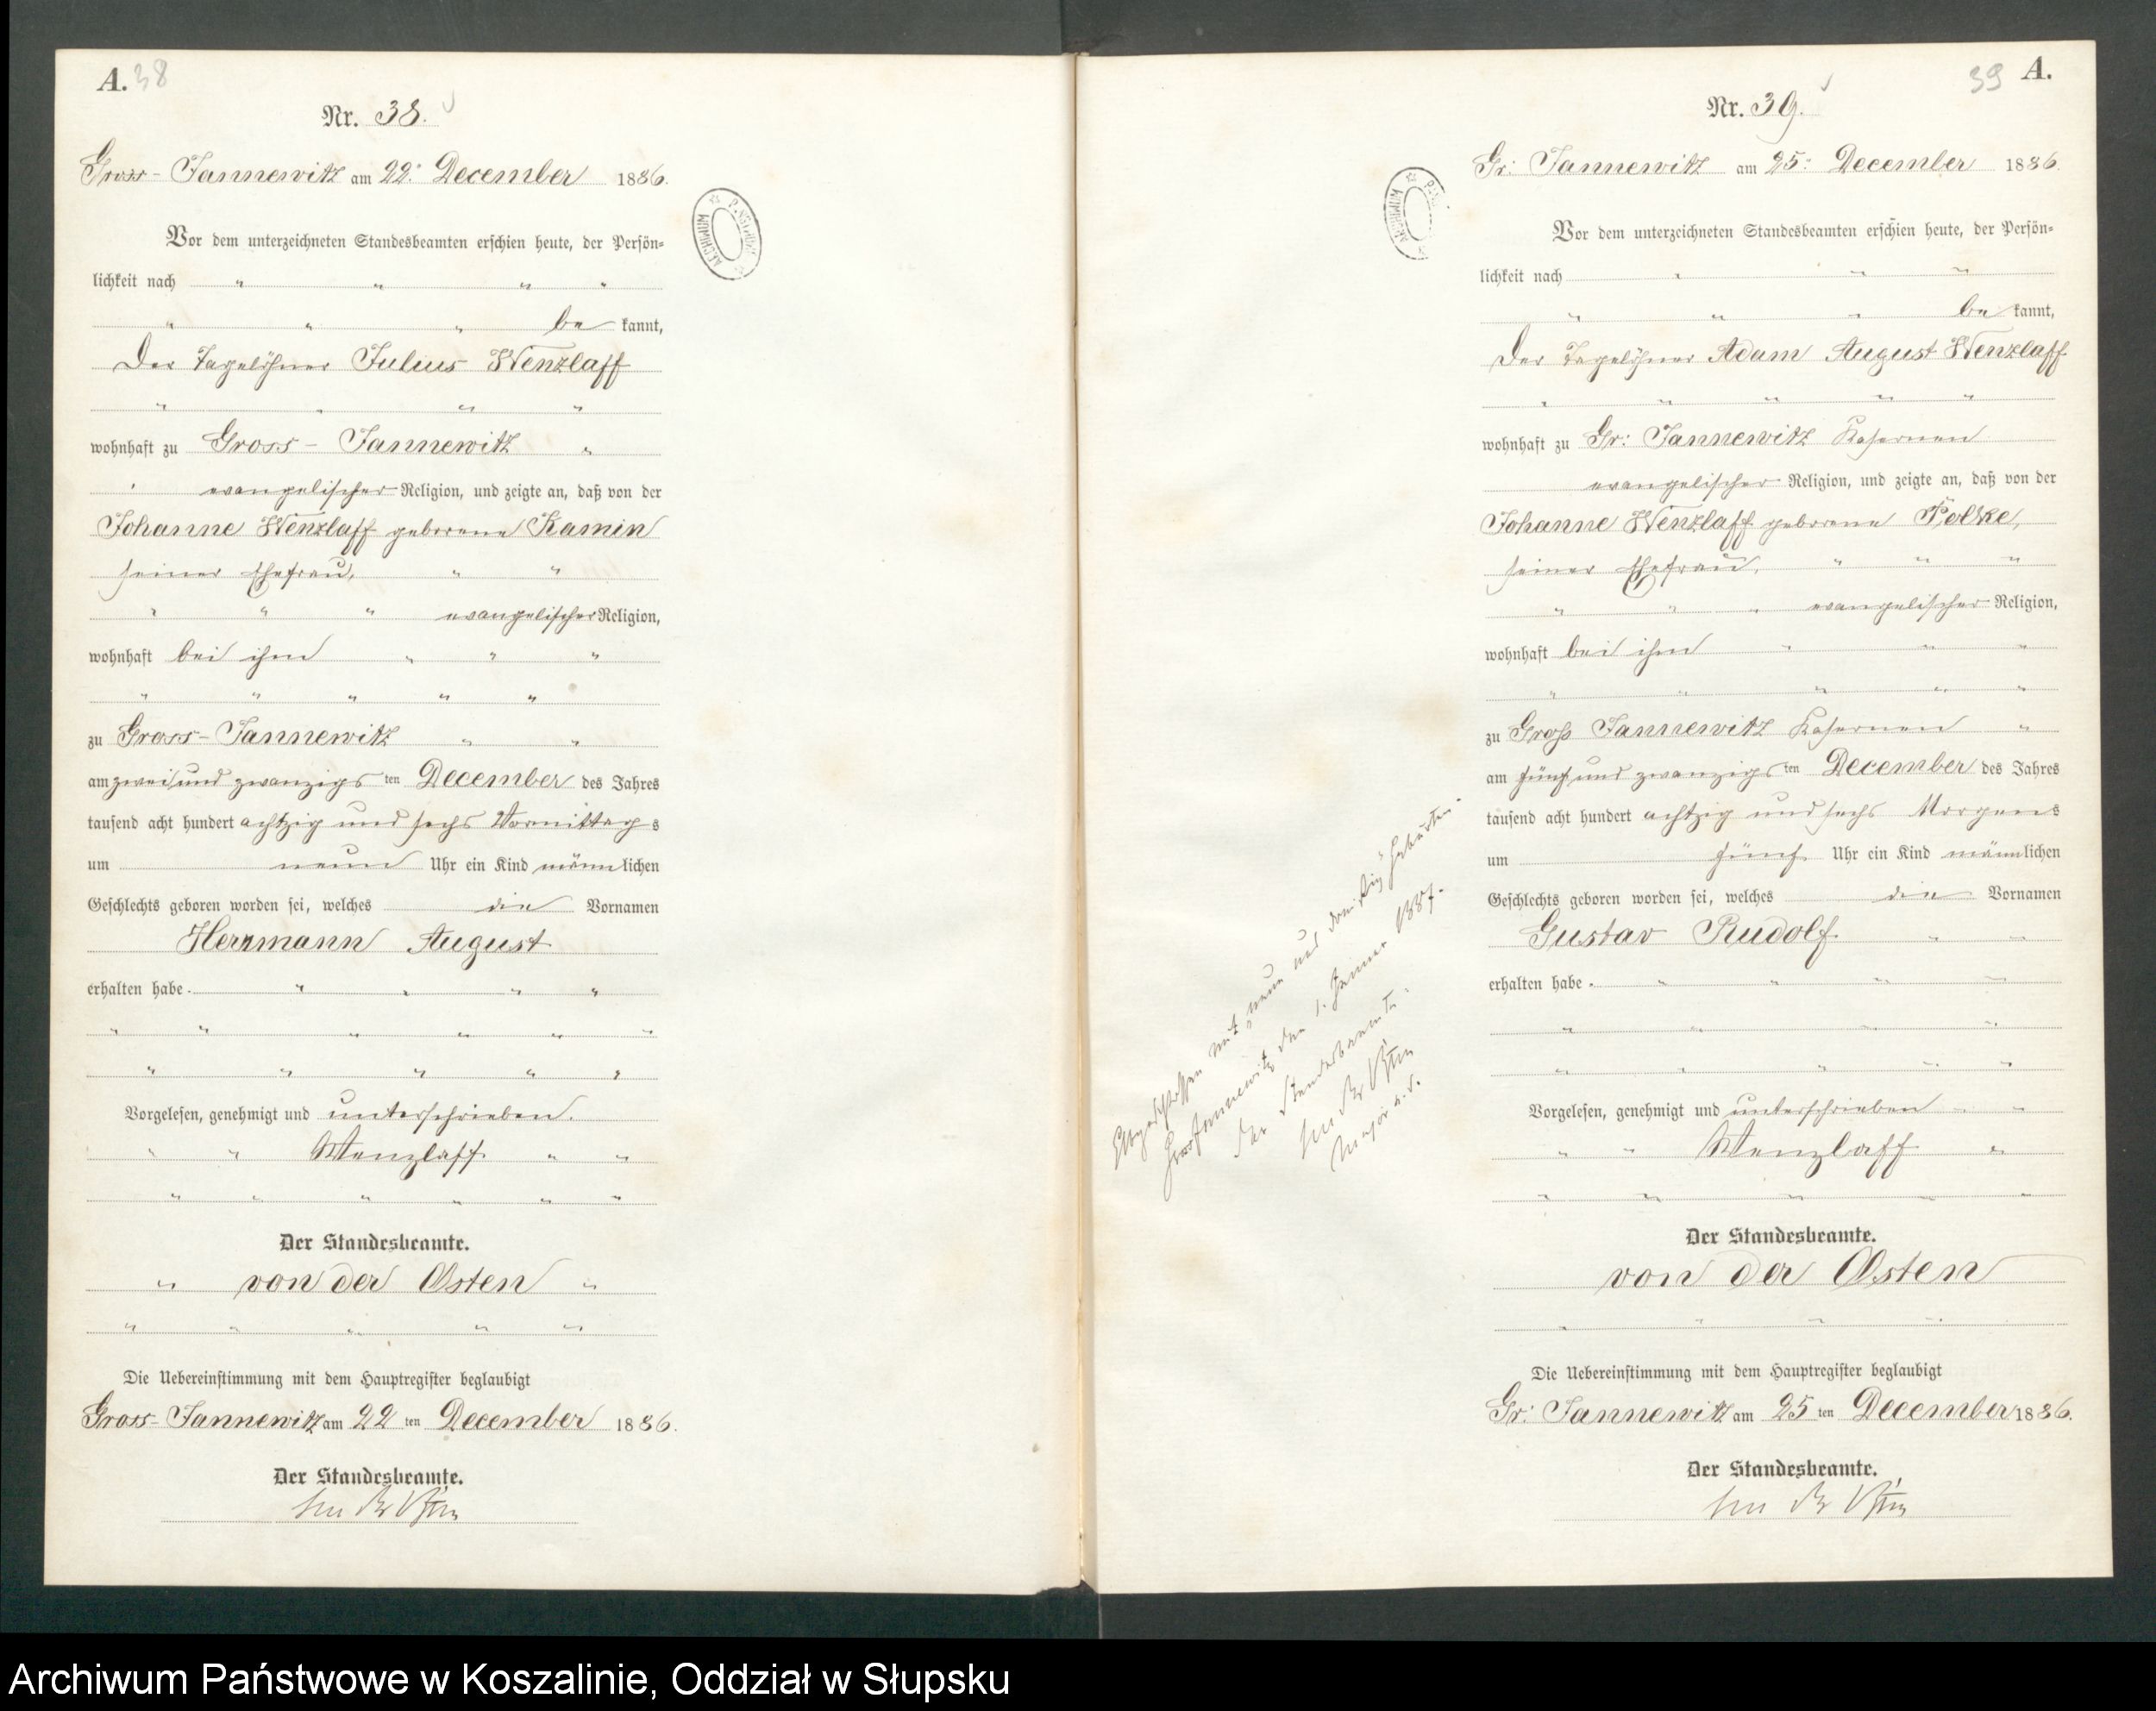 A. 38
Nr. 38.
Gross-Jannewitz am 22. December 1886.
Vor dem unterzeichneten Standesbeamten erschien heute, der Persön-
lichkeit nach " " " "
" " " be kannt,
Der Tagelöhner Julius Wenzlaff
" " " "
wohnhaft zu Gross-Jannewitz "
" evangelischer Religion, und zeigte an, daß von der
Johanne Wenzlaff geborene Kamin
seiner Ehefrau, " "
" " " evangelischer Religion,
wohnhaft bei ihm " " "
" " " " "
zu Gross-Jannewitz " "
am zwei und zwanzigs ten December des Jahres
tausend acht hundert achtzig und sechs Vormittag s
um neun Uhr ein Kind männ lichen
Geschlechts geboren worden sei, welches die Vornamen
Herrmann August
erhalten habe. " " " "
" " " " " "
" " " " "
Vorgelesen, genehmigt und unterschrieben.
" " Wenzlaff " "
" " " " " "
Der Standesbeamte.
" von der Osten "
" " " " "
Die Uebereinstimmung mit dem Hauptregister beglaubigt
Gross-Jannewitz am 22 ten December 1886.
Der Standesbeamte.
von der Osten
39 A.
Nr. 39.
Gr: Jannewitz am 25. December 1886.
Vor dem unterzeichneten Standesbeamten erschien heute, der Persön-
lichkeit nach " " "
" " " be kannt,
Der Tagelöhner Adam August Wenzlaff
" " " " "
wohnhaft zu Gr: Jannewitz Kasernen
evangelischer Religion, und zeigte an, daß von der
Johanne Wenzlaff geborene
seiner Ehefrau, " " "
" " " evangelischer Religion,
wohnhaft bei ihm " " "
" " " " "
zu Groß Jannewitz Kasernen "
am fünf und zwanzigs ten December des Jahres
tausend acht hundert achtzig und sechs Morgens
um fünf Uhr ein Kind männ lichen
Geschlechts geboren worden sei, welches die Vornamen
Gustav Rudolf " "
erhalten habe. " " " "
" " " "
" " " " "
Vorgelesen, genehmigt und unterschrieben " "
" " Wenzlaff "
" " " " "
Der Standesbeamte.
von der Osten
" " " "
Die Uebereinstimmung mit dem Hauptregister beglaubigt
Gr: Jannewitz am 25 ten December 1886.
Der Standesbeamte.
von der Osten
Abgeschlossen mit neun und dreißig Geburten.
Gross Jannewitz den 1. Januar 1887.
Der Standesbeamte.
von der Osten
Major a. D.
ARCHIWUM
ARCHIWUM
Archiwum Państwowe w Koszalinie, Oddział w Słupsku